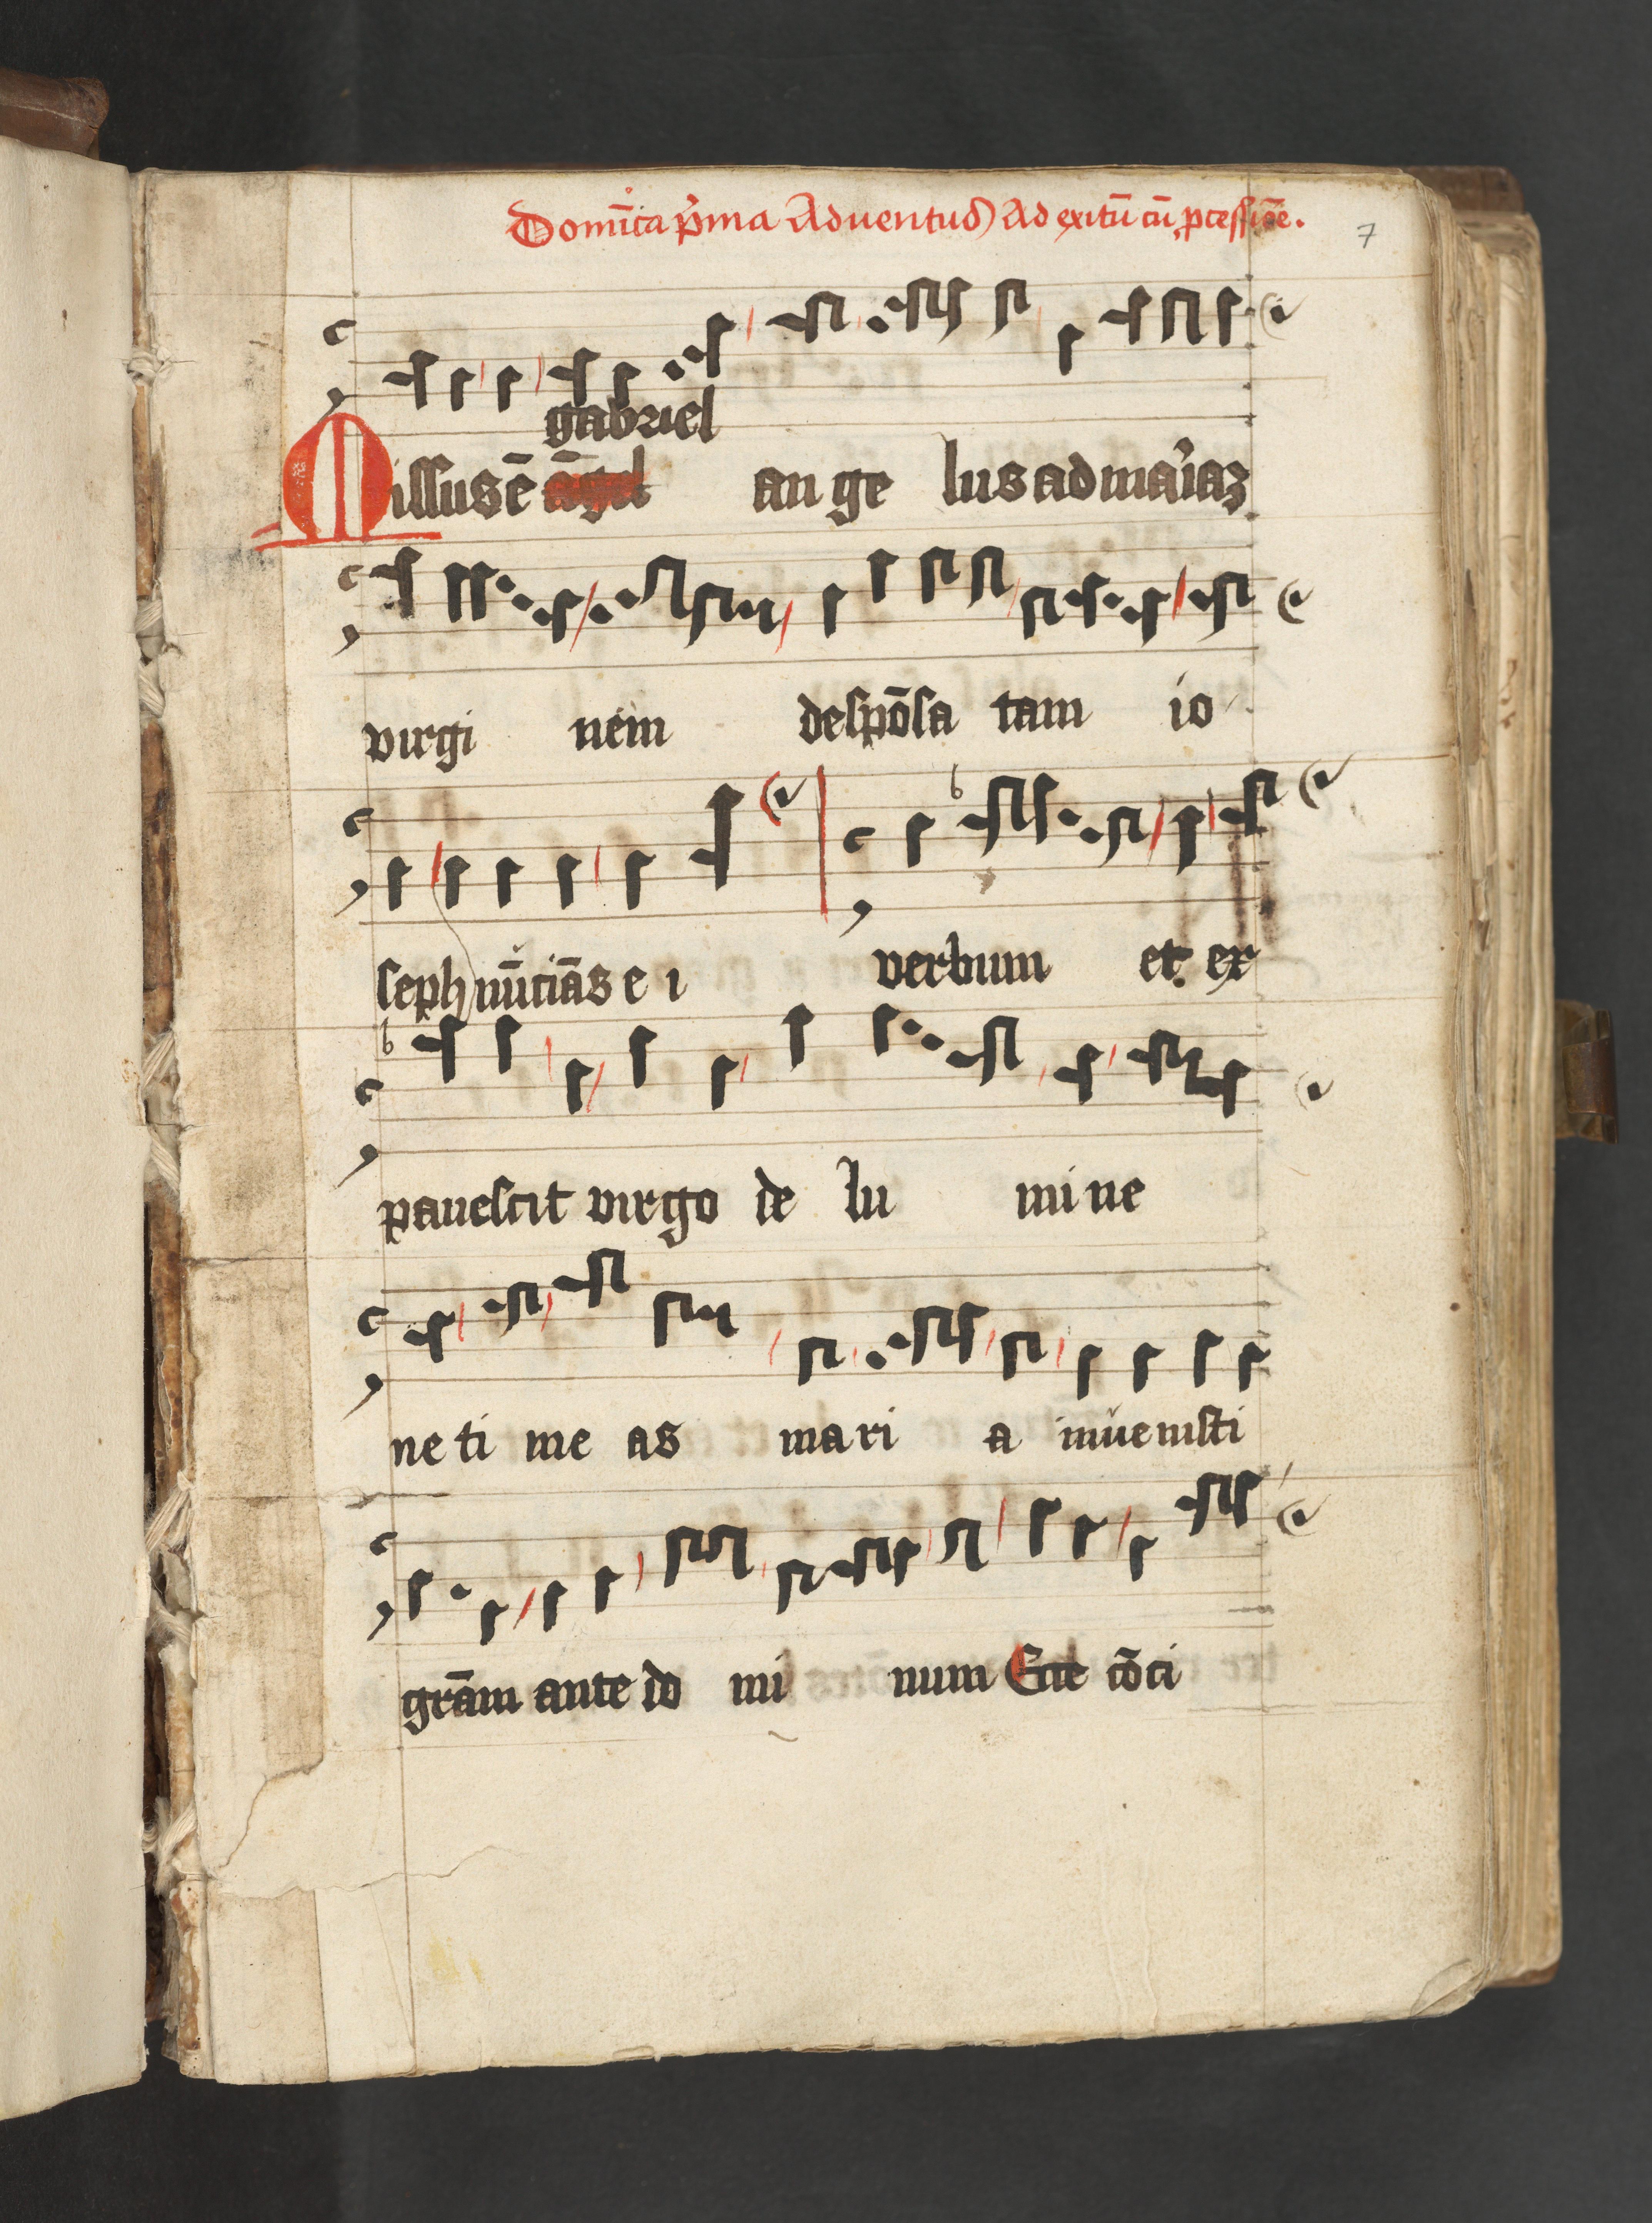 Domīca p̾ma Aduentus Ad exitū cū p̱cessiōe.
7
gabriel
Missus ē āgel an ge lus ad mar̾iaz
virgi nem despōsa tam io
seph nūciās e i verbum et ex
pauescit virgo de lu mi ne
ne ti me as ma ri a inuenisti
grām ante do mi num Ecce cōci